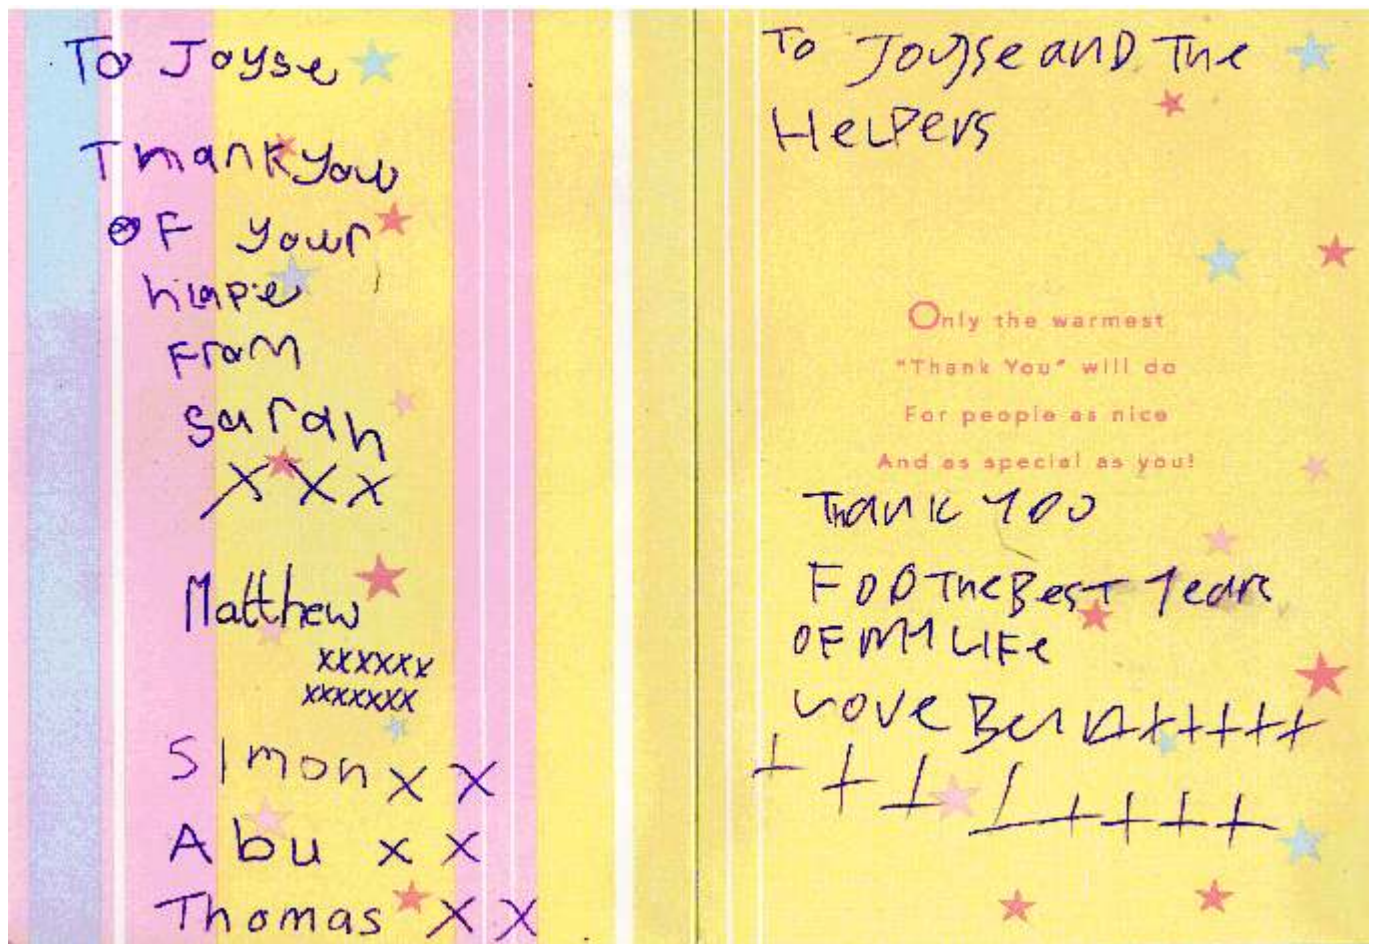 To Joyse
Thank you
OF your
hlape
From
Sarah
X X X
Matthew
xxxxxx
xxxxxxx
SImon x x
Abu x x
Thomas X X
To Joyse anD The
HeLPers
Only the warmest
"Thank You" will do
For people as nice
And as special as you!
Thank YOU
FOD The BesT Years
OF MY LIFe
Love Ben